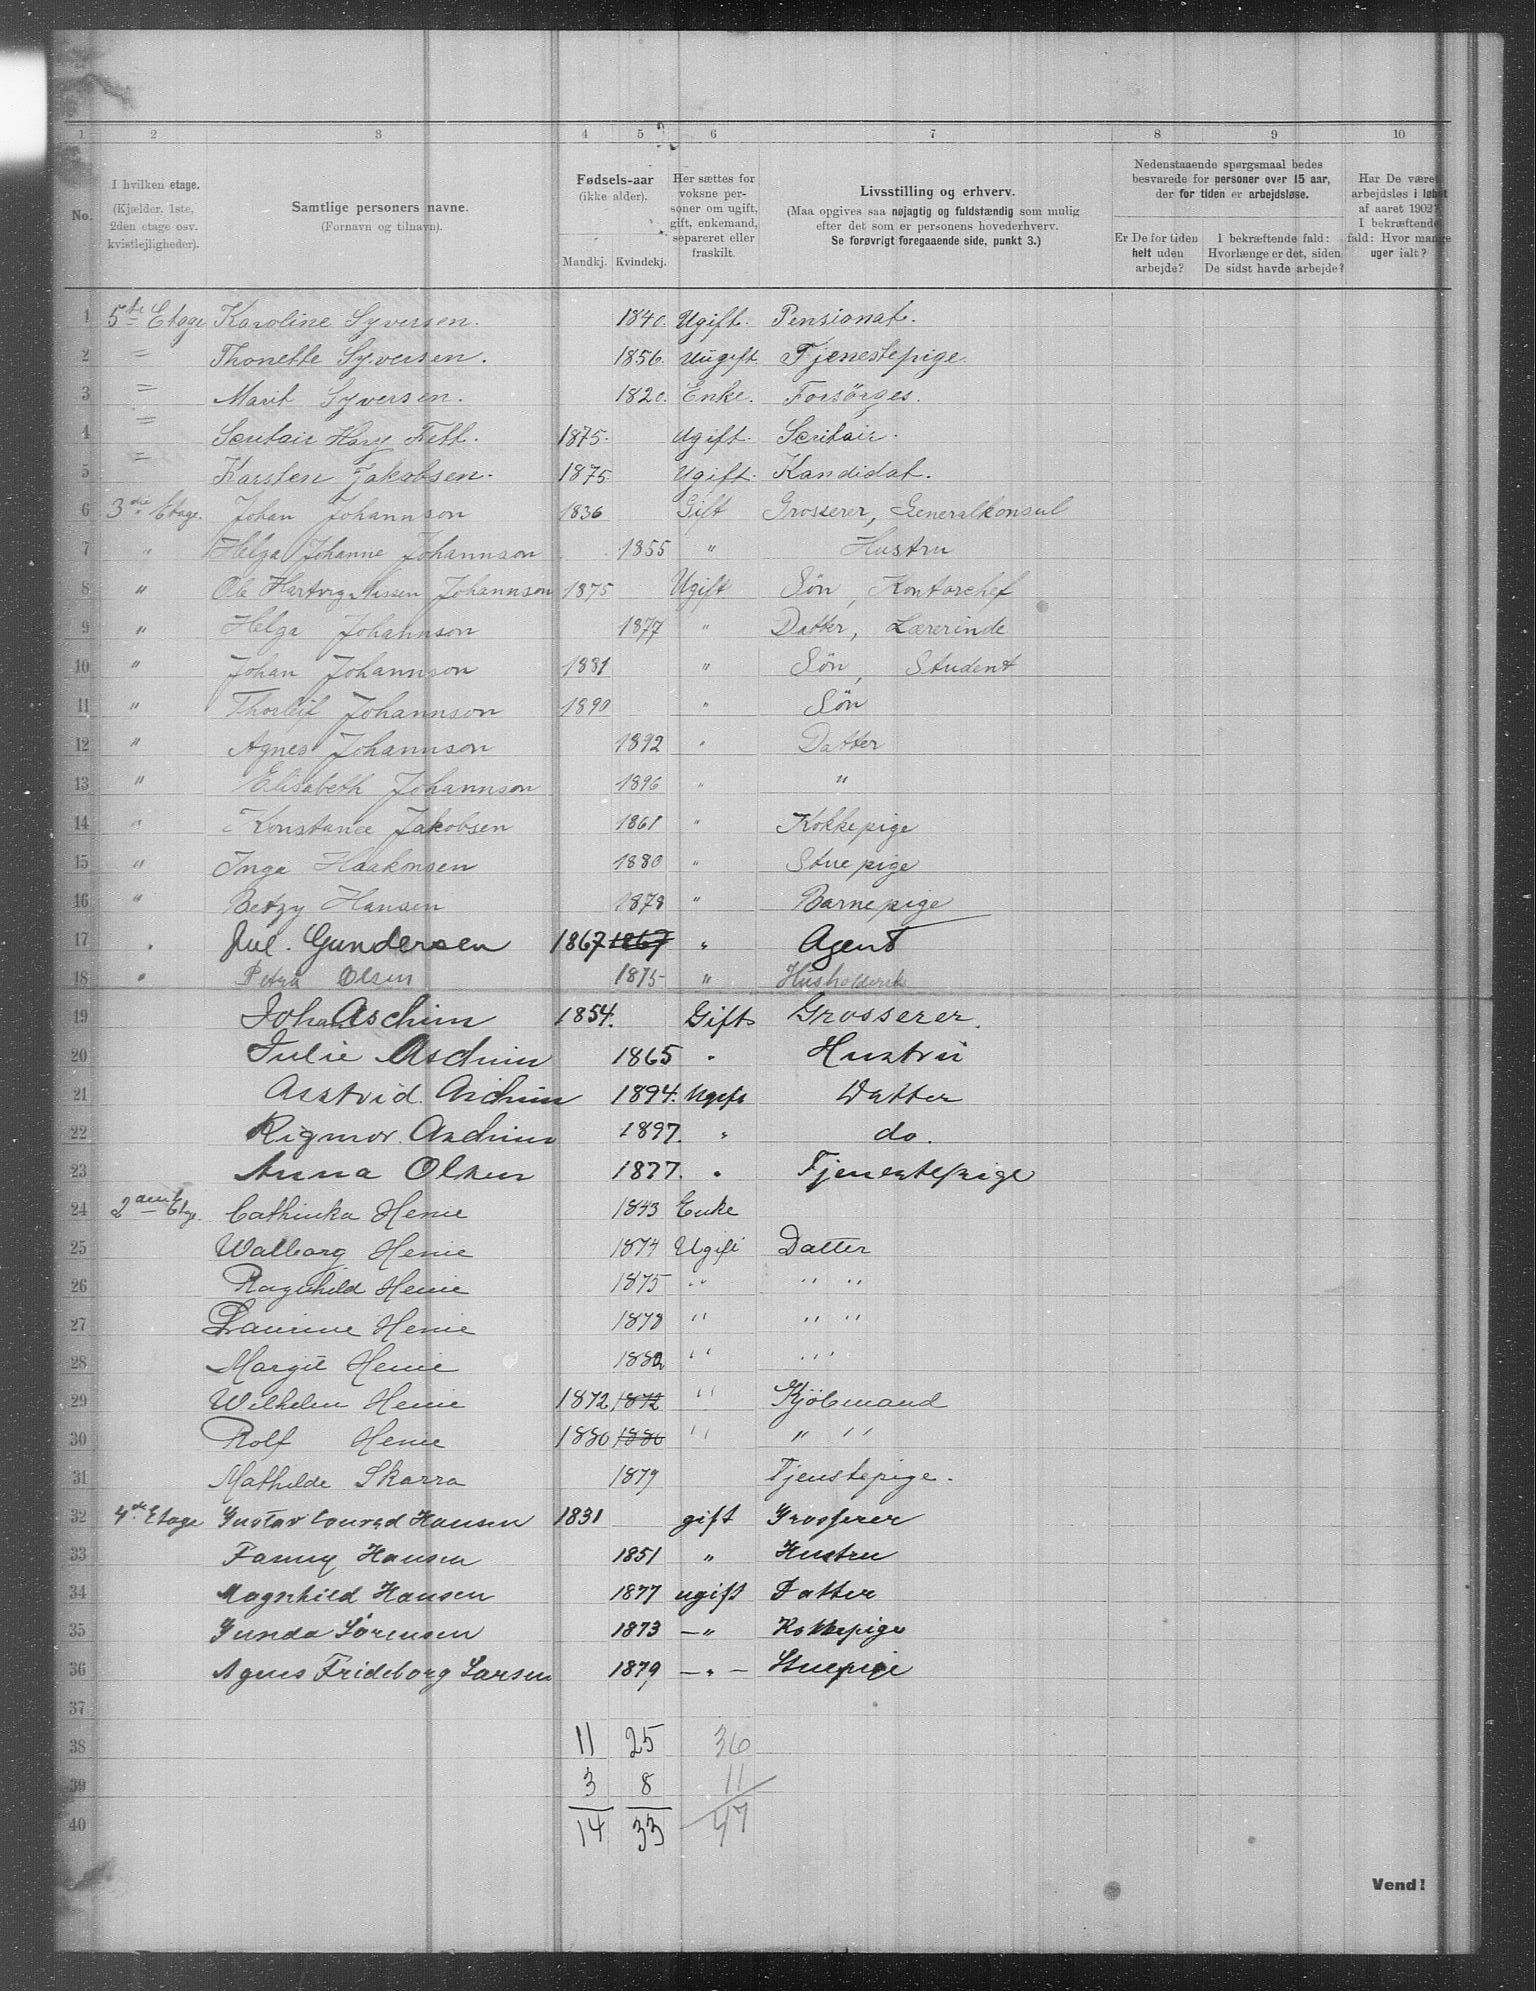 1 2 3 4 5 6 7 8 9 10
No.
I hvilken etage.
(Kjælder, 1ste,
2den etage osv.
kvistlejligheder).
Samtlige personers navne.
(Fornavn og tilnavn).
Fødsels-aar
(ikke alder).
Mandkj. Kvindekj.
Her sættes for
voksne per-
soner om ugift,
gift, enkemand,
separeret eller
fraskilt.
Livsstilling og erhverv.
(Maa opgives saa nøjagtig og fuldstændig som mulig
efter det som er personens hovederhverv.
Se forøvrigt foregaaende side, punkt 3.)
Nedenstaaende spørgsmaal bedes
besvarede for personer over 15 aar,
der for tiden er arbejdsløse.
Er De for tiden
helt uden
arbejde?
I bekræftende fald:
Hvorlænge er det, siden
De sidst havde arbejde?
Har De været
arbejdsløs i løbet
af aaret 1902?
I bekræftende
fald: Hvor mange
uger ialt?
1 5te Etage Karoline Syversen. 1840. Ugift. Pensionat.
2 = Thonette Syversen. 1856. Uugift Tjenestepige
3 = Marit Syversen. 1820. Enke. Forsörges.
4 = Hary Fett. 1875. Ugift.
5 = Karsten Jakobsen. 1875. Ugift. Kandidat.
6 3die Etage. Johan Johannson 1836 Gift Grosserer, Generalkonsul
7 " Helga Johanne Johannson 1855 " Hustru
8 " Ole Hartvig Nissen Johannson 1875 Ugift Sön, Kontorchef
9 " Helga Johannson 1877 " Datter, Lærerinde
10 " Johan Johannson 1881 " Sön, Student
11 " Thorleif Johannson 1890 " Sön
12 " Agnes Johannson 1892 " Datter
13 " Elisabeth Johannson 1896 " "
14 " Konstance Jakobsen 1861 " Kokkepige
15 " Inga Haakonsen 1880 " Stuepige
16 " Betzy Hansen 1878 " Barnepige
17 " Jul. Gundersen 1867 1867 " Agent
18 " Petra Olsen 1875 " Husholderske
19 Johan Aschim 1854. Gift Grosserer.
20 Julie Aschim 1865 " Hustru
21 Asstrid Aschim 1894. Ugift Datter
22 Rigmor Aschim 1897. " do.
23 Anna Olsen 1877. " Tjenestepige
24 2den Etage. Cathinka Henie 1843 Enke
25 Walborg Henie 1874 Ugift Datter
26 Ragnhild Henie 1875 " " "
27 Laurine Henie 1878 " " "
28 Margit Henie 1882 " " "
29 Wilhelm Henie 1872 1872 " Kjöbmand
30 Rolf Henie 1880 1880 " " "
31 Mathilde Skarra 1879 Tjenstepige.
32 4de Etage Gustav Conrad Hansen 1831 gift Grosserer
33 Fanny Hansen 1851 " Hustru
34 Magnhild Hansen 1877 ugift Datter
35 Gunda Sörensen 1873 –" Kokkepige
36 Agnes Frideborg Larsen 1879 –"– Stuepige
37
38 11 25 36
39 3 8 11
40 14 33 47
Vend!